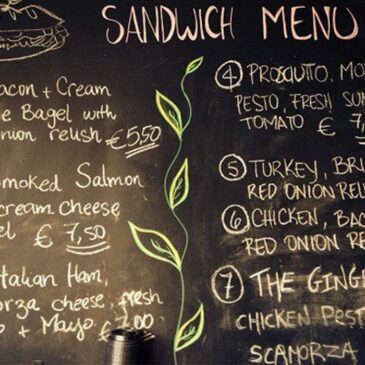 SANDWICH MENU
acon + Cream
e Bagel with
nion relish €5,50
moked Salmon
cream cheese
el € 7,50
talian Ham,
orza cheese, fresh
o + Mayo. € 7.00
4 PROSCIUTTO, MO
PESTO, FRESH SUN
TOMATO € 7,
5 TURKEY, BRI
RED ONION REL
6 CHICKEN, BAC
RED ONION RE
7 THE GINGE
CHICKEN PEST
SCAMORZA